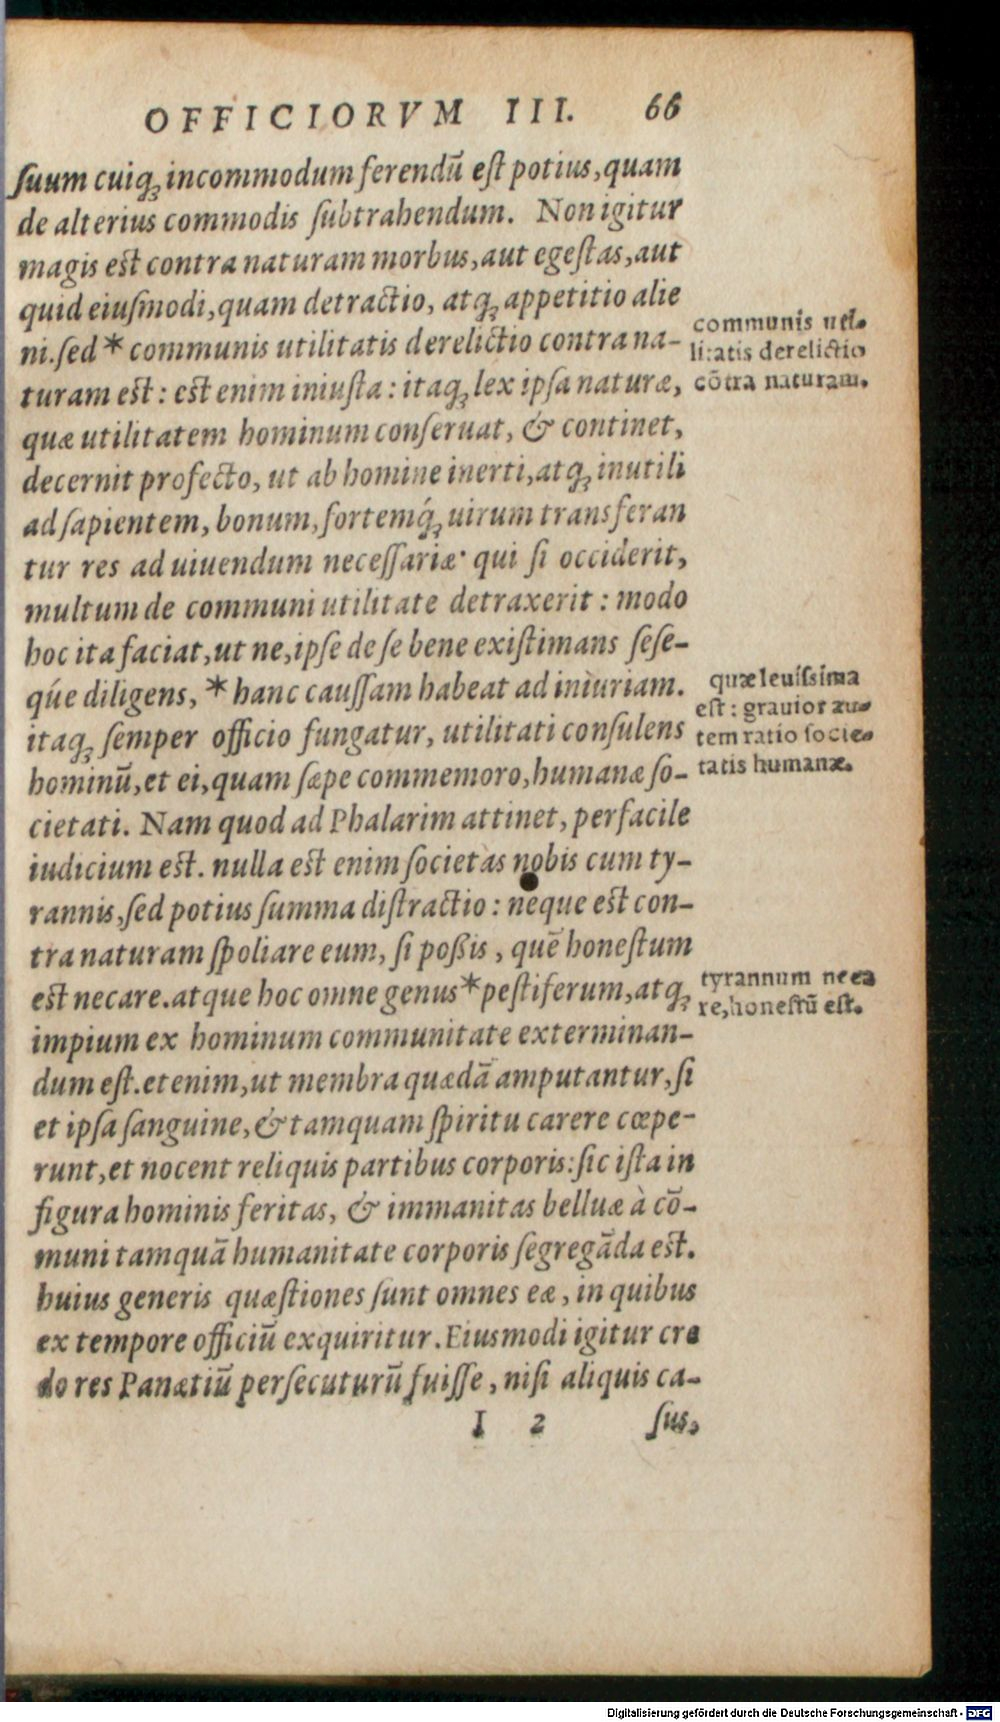 OFFICIORVM III. 66
suum cuiq; incommodum ferendū est potius, quam
de alterius commodis subtrahendum. Non igitur
magis est contra naturam morbus, aut egestas, aut
quid eiusmodi, quam detractio, atq; appetitio alie
ni. sed * communis utilitatis derelictio contra na-
turam est: est enim iniusta: itaq; lex ipsa naturæ,
quæ utilitatem hominum conseruat, & continet,
decernit profecto, ut ab homine inerti, atq; inutili
ad sapientem, bonum, fortemq́; uirum transferan
tur res ad uiuendum necessariæ· qui si occiderit,
multum de communi utilitate detraxerit: modo
hoc ita faciat, ut ne, ipse de se bene existimans sese-
q́ue diligens, * hanc caussam habeat ad iniuriam.
itaq; semper officio fungatur, utilitati consulens
hominū, et ei, quam sæpe commemoro, humanæ so-
cietati. Nam quod ad Phalarim attinet, perfacile
iudicium est. nulla est enim societas nobis cum ty-
rannis, sed potius summa distractio: neque est con-
tra naturam spoliare eum, si poßis, quē honestum
est necare. atque hoc omne genus * pestiferum, atq;
impium ex hominum communitate exterminan-
dum est. etenim, ut membra quædā amputantur, si
et ipsa sanguine, & tamquam spiritu carere cœpe-
runt, et nocent reliquis partibus corporis: sic ista in
figura hominis feritas, & immanitas belluæ à cō-
muni tamquā humanitate corporis segregāda est.
huius generis quæstiones sunt omnes eæ, in quibus
ex tempore officiū exquiritur. Eiusmodi igitur cre
do res Panætiū persecuturū fuisse, nisi aliquis ca-
I 2 sus,
communis uti-
litatis derelictio
cōtra naturam.
quæ leuissima
est: grauior au-
tem ratio socie-
tatis humanæ.
tyrannum neca
re, honestū est.
Digitalisierung gefördert durch die Deutsche Forschungsgemeinschaft - DFG